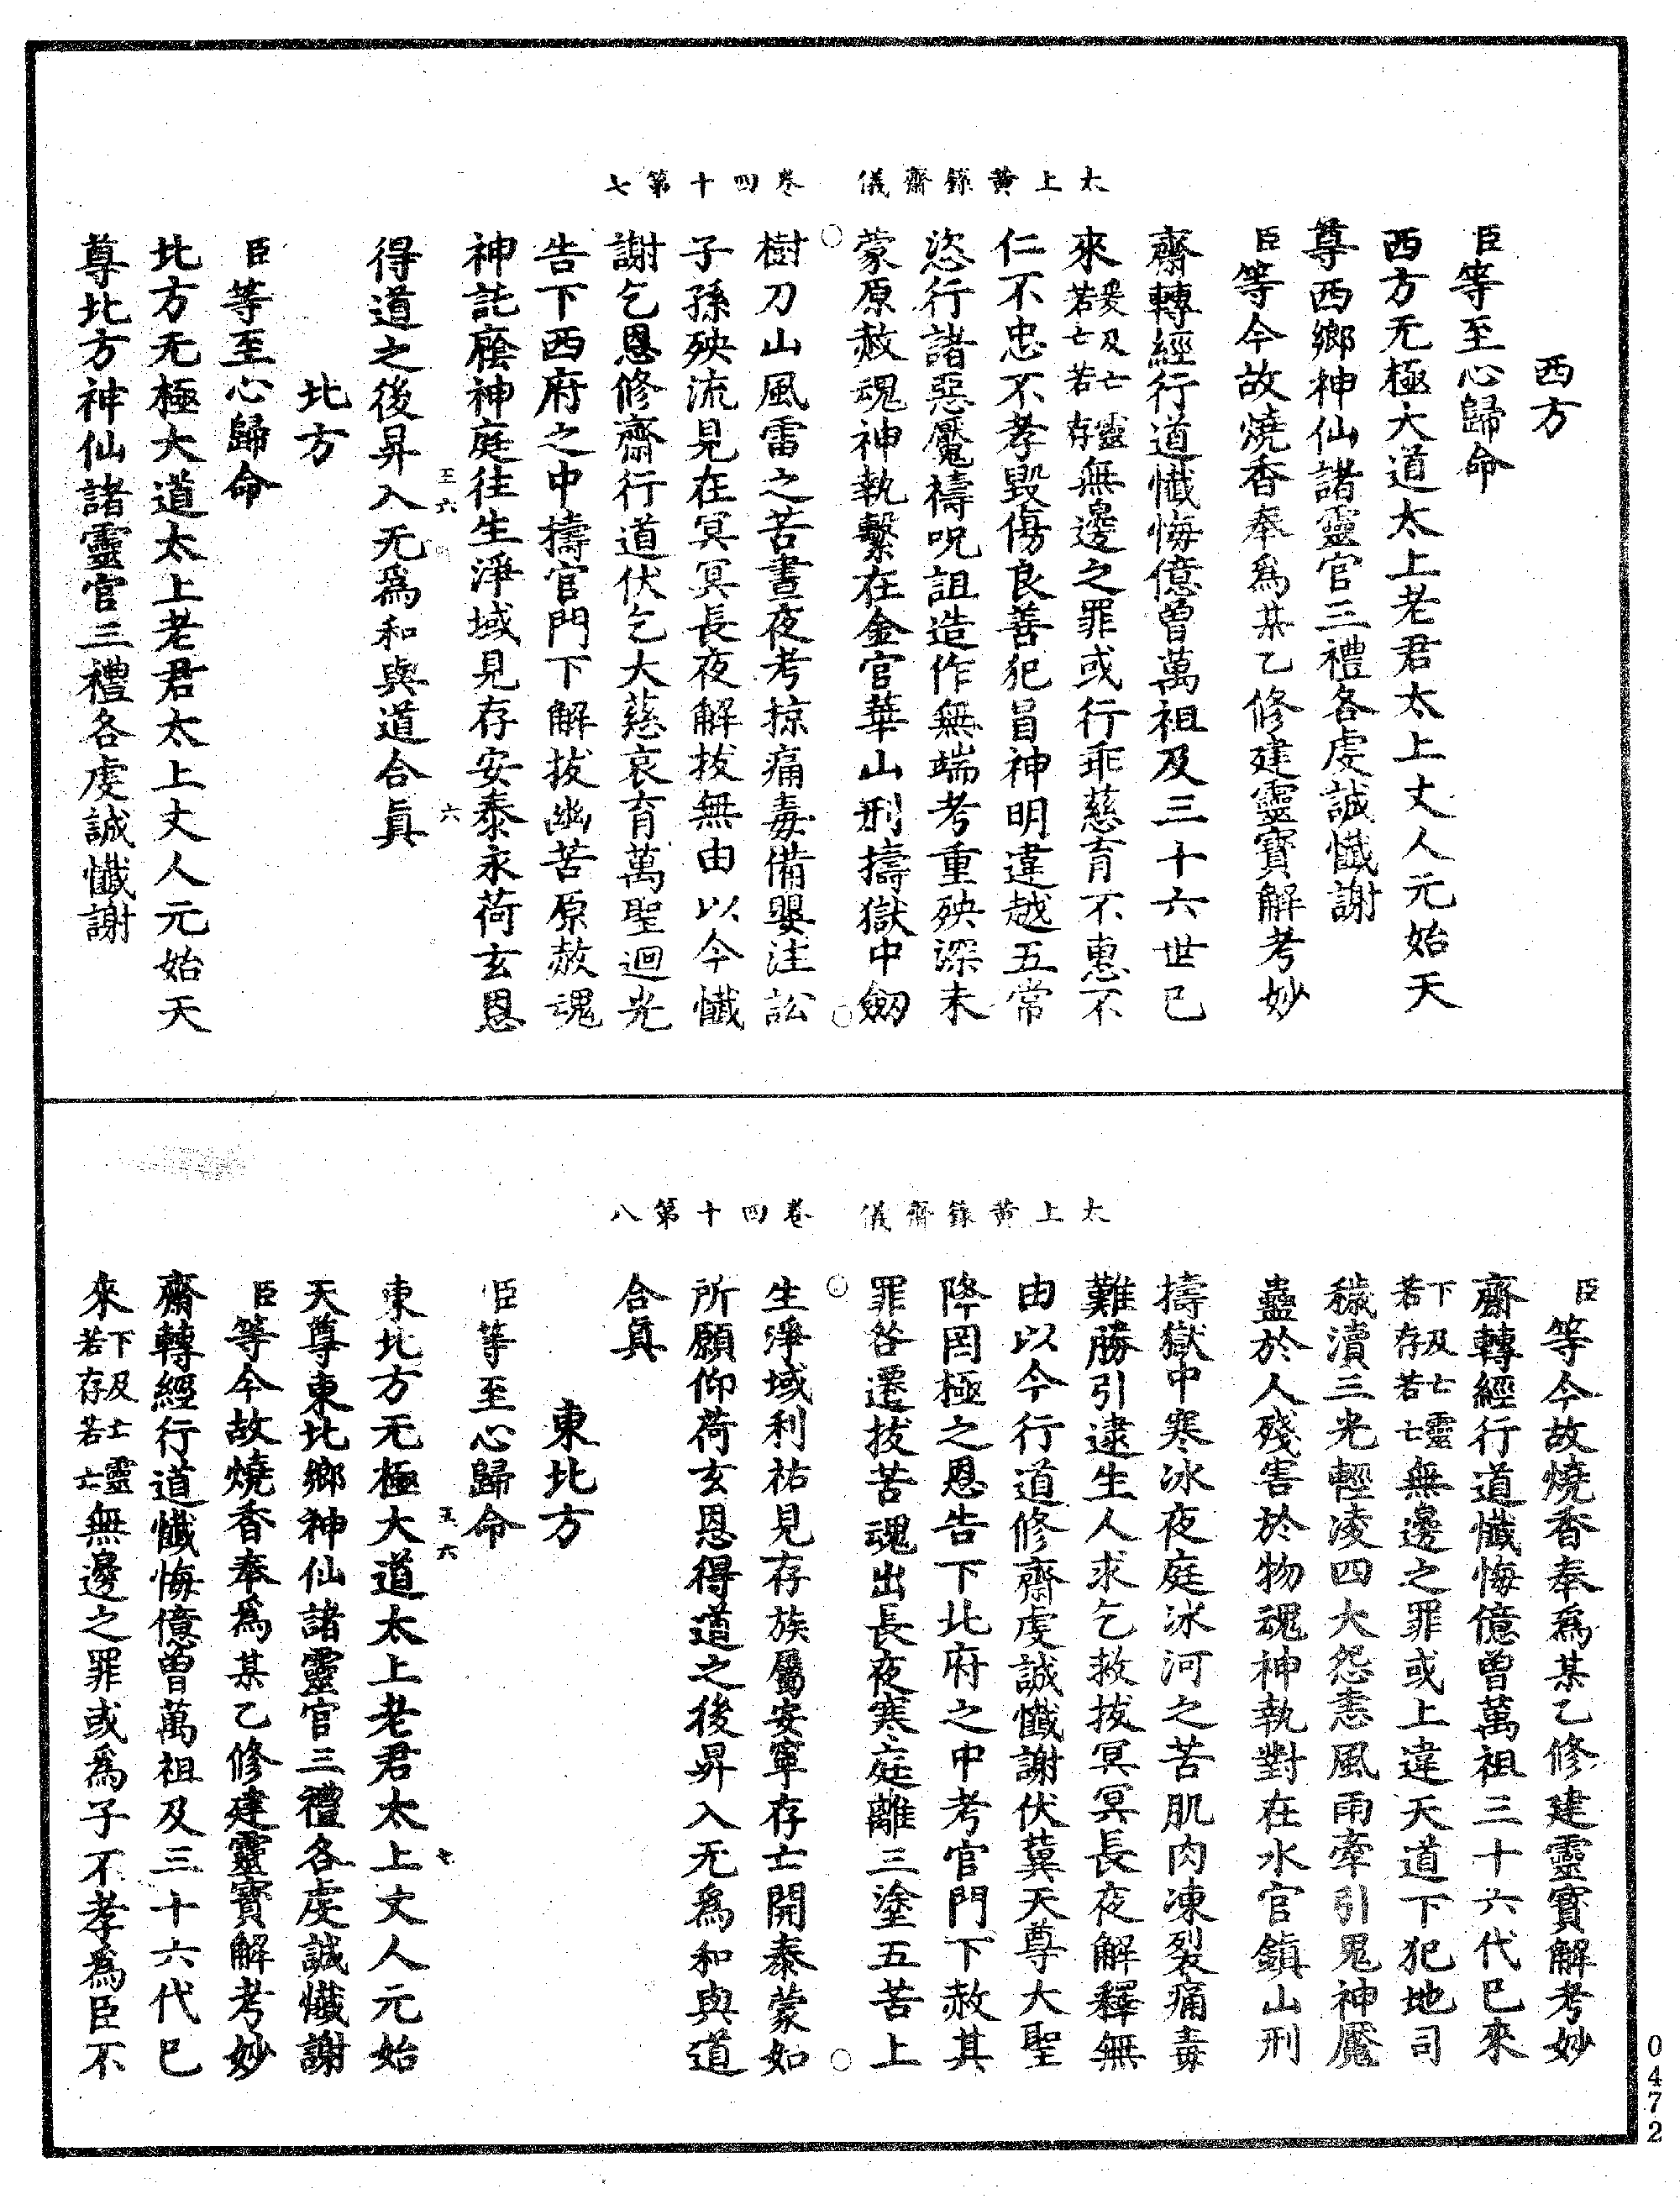 太上黃籙齋儀　卷四十第七
西方
臣等至心歸命
西方无極大道太上老君太上丈人元始天
尊西鄉神仙諸靈官三禮各虔誠懺謝
臣等今故燒香奉爲某乙修建靈寶解考妙
齋轉經行道懺悔億曾萬祖及三十六世已
來爰及亡靈若亡若存無邊之罪或行乖慈育不惠不
仁不忠不孝毀傷良善犯冒神明違越五常
恣行諸惡魘禱呪詛造作無端考重殃深未
蒙原赦魂神執繫在金官華山刑擣獄中劒
樹刀山風雷之苦晝夜考掠痛毒備嬰注訟
子孫殃流見在冥冥長夜解拔無由以今懺
謝乞恩修齋行道伏乞大慈哀育萬聖迴光
告下西府之中擣官門下解拔幽苦原赦魂
神託廕神庭往生淨域見存安泰永荷玄恩
得道之後昇入无爲和與道合眞
三六
六
北方
臣等至心歸命
北方无極大道太上老君太上丈人元始天
尊北方神仙諸靈官三禮各虔誠懺謝
太上黃籙齋儀　卷四十第八
臣等今故燒香奉爲某乙修建靈寶解考妙
齋轉經行道懺悔億曾萬祖三十六代已來
下及亡靈若存若亡無邊之罪或上違天道下犯地司
穢瀆三光輕凌四大怨恚風雨牽引鬼神魘
蠱於人殘害於物魂神執對在水官鎮山刑
擣獄中寒冰夜庭冰河之苦肌肉凍裂痛毒
難勝引逮生人求乞救拔冥冥長夜解釋無
由以今行道修齋虔誠懺謝伏冀天尊大聖
降罔極之恩告下北府之中考官門下赦其
罪咎遷拔苦魂出長夜寒庭離三塗五苦上
生淨域利祐見存族屬安寧存士開泰蒙如
所願仰荷玄恩得道之後昇入无爲和與道
合眞
東北方
臣等至心歸命
五六
七
東北方无極大道太上老君太上丈人元始
天尊東北鄉神仙諸靈官三禮各虔誠懺謝
臣等今故燒香奉爲某乙修建靈寶解考妙
齋轉經行道懺悔億曾萬祖及三十六代已
來下及亡靈若存若亡無邊之罪或爲子不孝爲臣不
0472